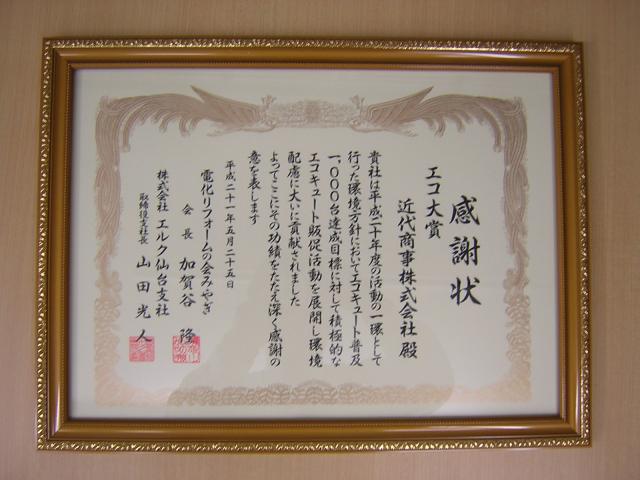 感謝状
エコ大賞
近代商事株式会社 殿
貴社は平成二十年度の活動の一環として
行った環境方針においてエコキュート普及
一、〇〇〇台達成目標に対して積極的な
エコキュート販促活動を展開し環境
配慮に大いに貢献されました
よってここにその功績をたたえ深く感謝の
意を表します
平成二十一年五月二十五日
電化リフォームの会みやぎ
会長 加賀谷 隆
株式会社 エルク仙台支社
取締役支社長 山田光人